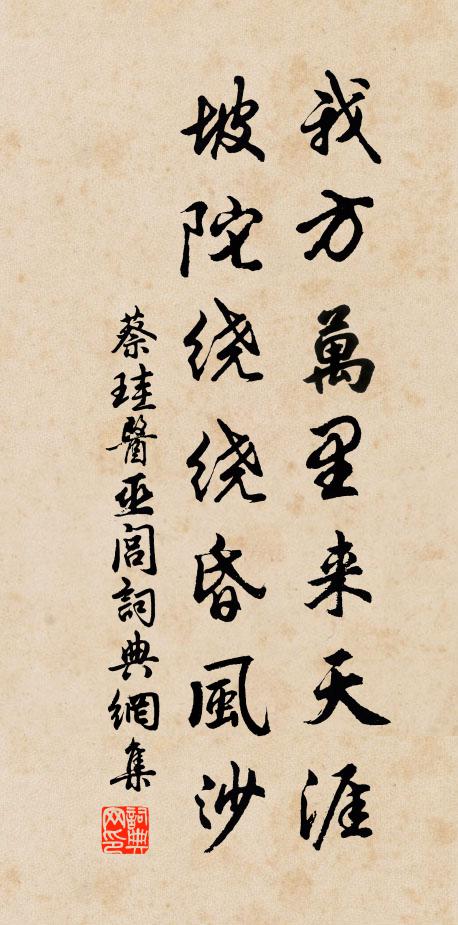 我方萬里来天涯
坡陀绕绕昏風沙
蔡珪醫巫閭詞典網集
詞典网印